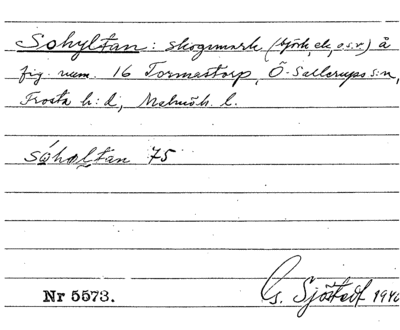 Sohyltan: skogsmark (björk, ek, o.s.v.) å
fig. num. 16 Tormastorp, Ö. Sallerups s:n,
Frosta h:d, Malmöh. l.
sóhəltan 75
Nr 5573.
G. Sjöstedt 1946